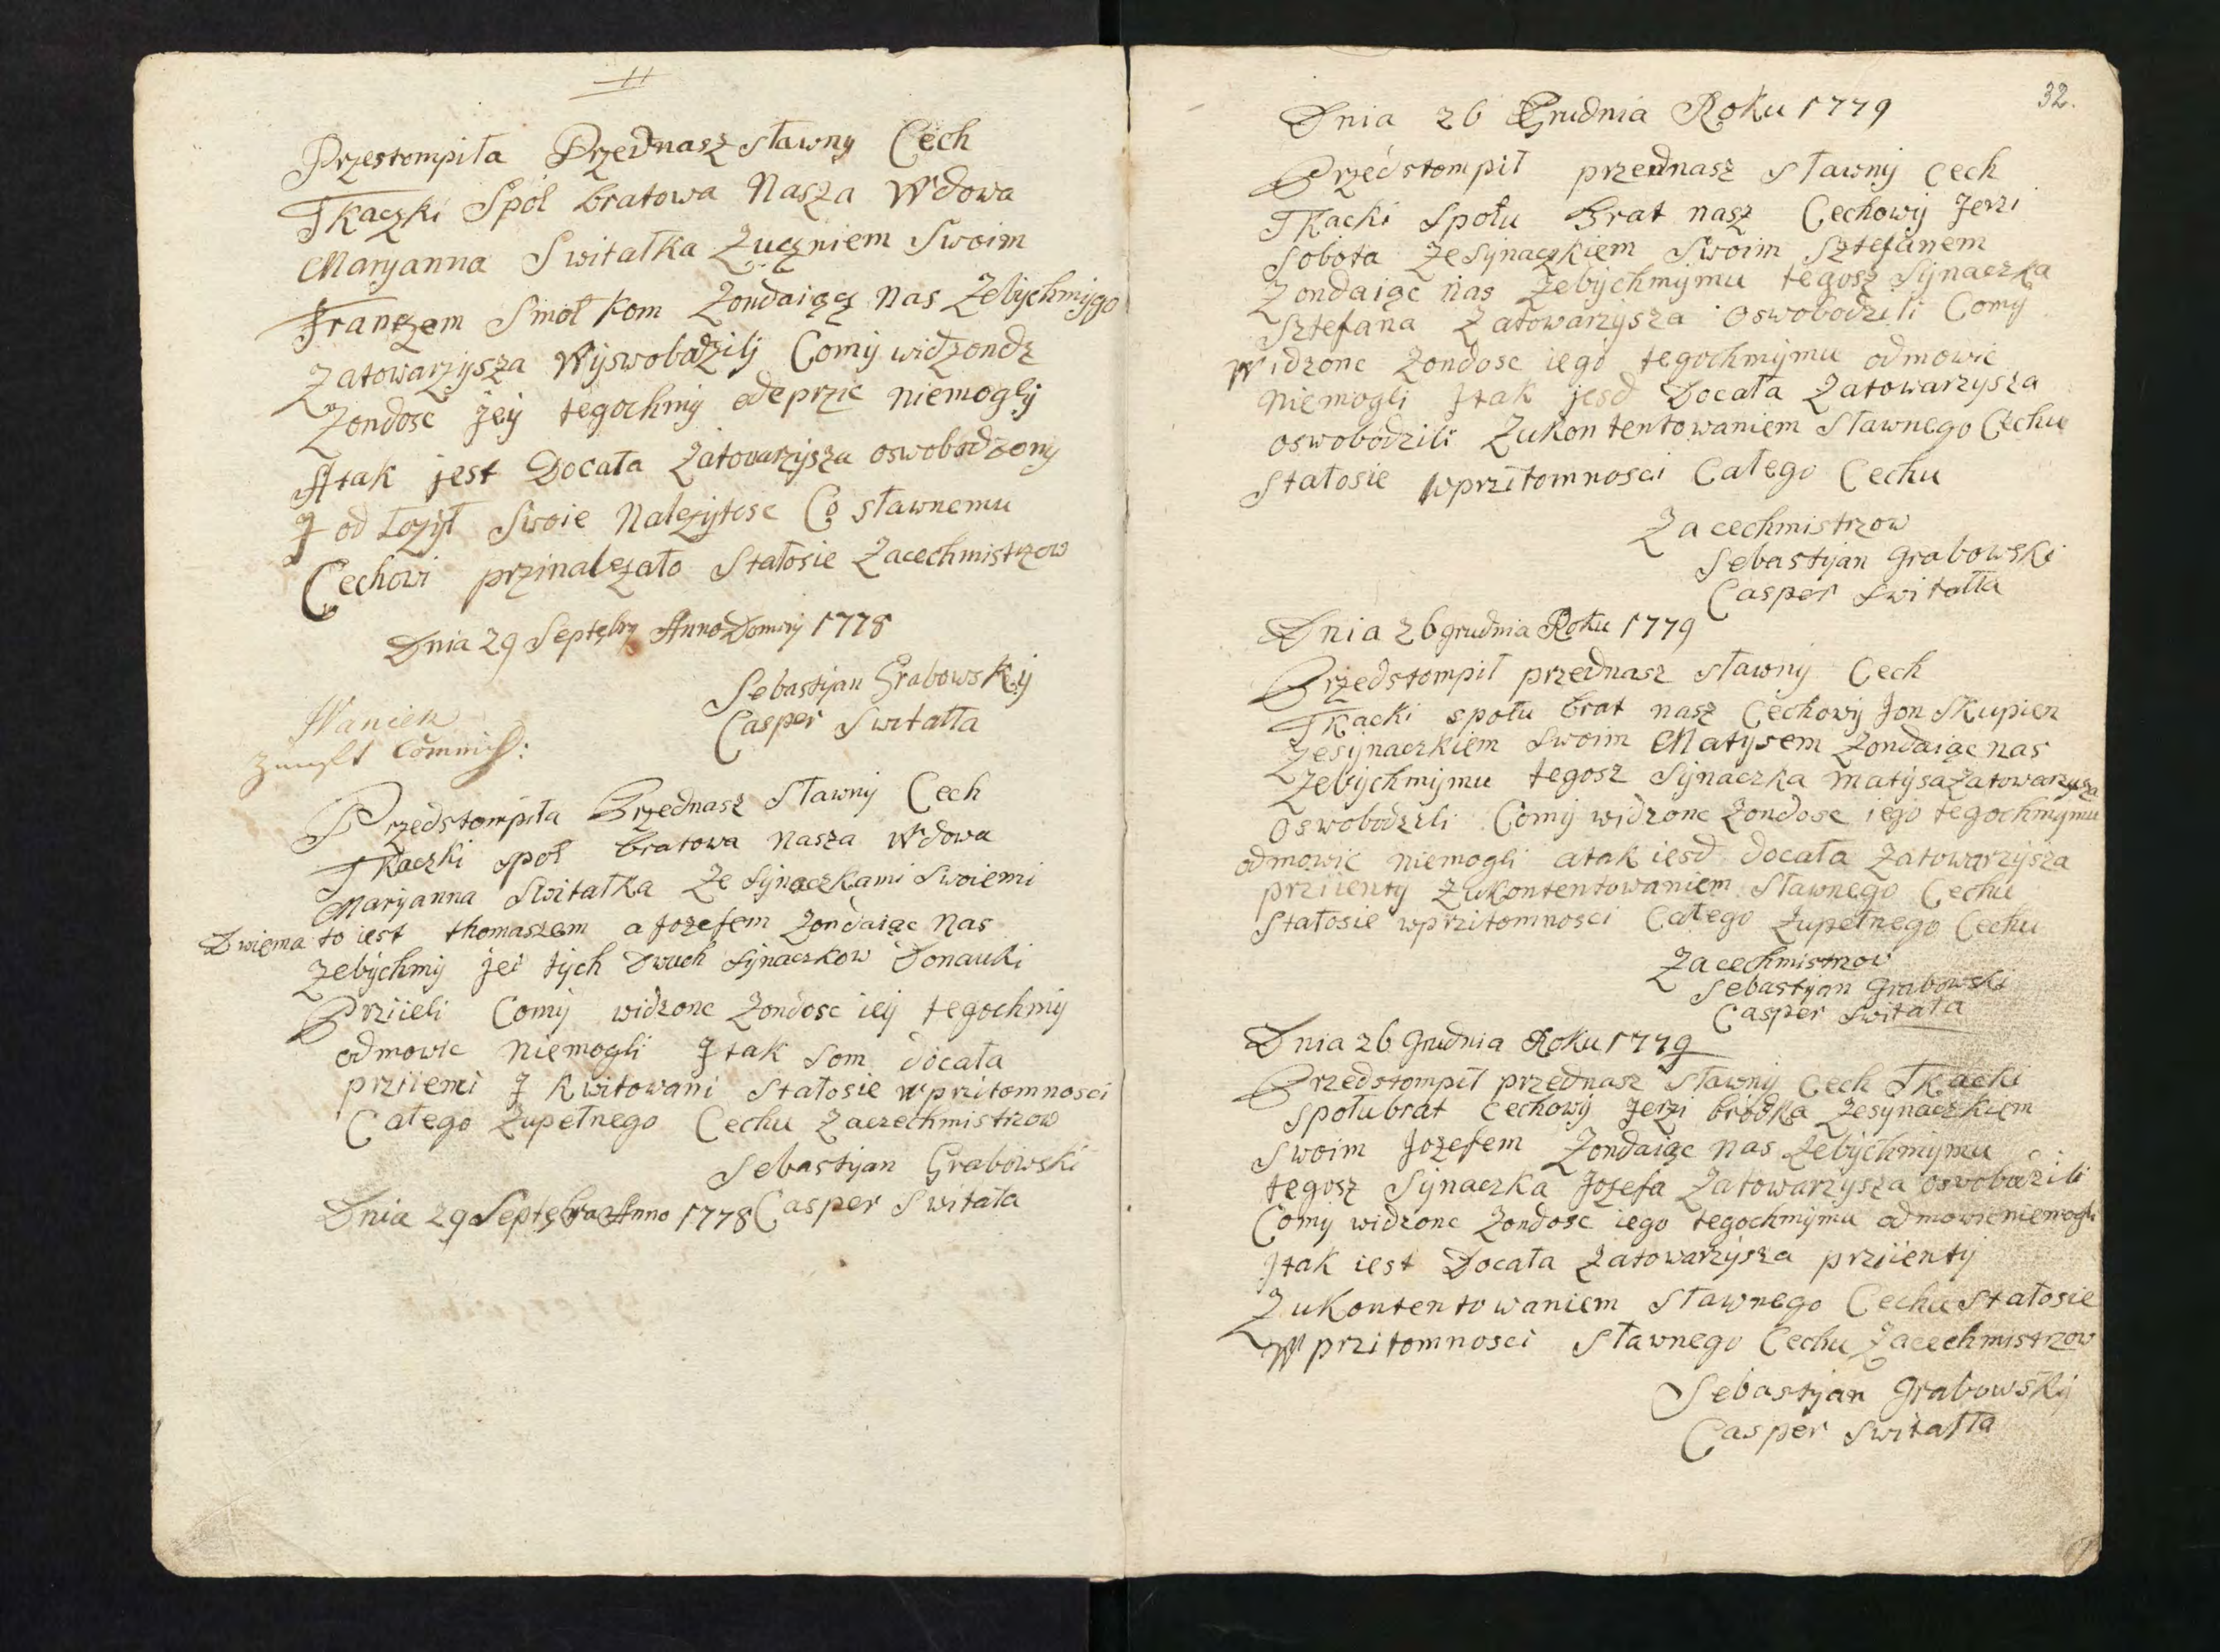 Przestompiła Przednasz sławny Cech
Tkaczki Społ bratowa Nasza Wdowa
Maryanna Switałka Zuczniem Swoim
Franczem Smołkom Zondaiącz Nas Zebychmÿgo
Zatowarzÿsza Wÿswobodzilÿ Comÿ widzondz
Zondosc Jeÿ tegochmÿ odeprzic niemoglÿ
Atak jest Docała Zatowarzÿsza oswobodzonÿ
J od Łozÿł Swoie Nalezÿtosc Co sławnemu
Cechowi przinalezało Stałosie Zacechmistrzow
Dnia 29 Septębrÿ Anno Dominÿ 1778
Sebastÿan Grabowskÿ
Casper Switałła
Waniek
Zunfft Commiss:
Przedstompiła Przednasz Sławnÿ Cech
Tkaczki społ bratowa nasza Wdowa
Marÿanna Switałka Ze Sÿnaczkami Swoiemi
Dwiema to iest thomaszem a Jozefem Zondaiąc Nas
Zebÿchmÿ Jei tÿch Dwuch Sÿnaczkow Donauki
Prziieli Comÿ widzonc Zondosc ieÿ tegochmÿ
odmowic niemogli J tak som docała
prziiemi J kwitowani Stałosie wprzitomnosci
Całego Zupełnego Cechu Zaczechmistrzow
Sebastÿan Grabowski
Dnia 29 Septębra Anno 1778 Casper Switała
32.
Dnia 26 Grudnia Roku 1779
Przedstompił przednasz Sławnÿ Cech
Tkacki Społu Brat nasz Cechowÿ Jerzi
Sobota ZeSÿnaczkiem Swoim Sztefanem
Zondaiąc nas Zebÿchmÿmu tegosz Sÿnaczka
Sztefana Zatowarzÿsza oswobodzili Comÿ
Widzonc Zondosc iego tegochmÿmu odmowic
Niemogli Jtak jesd Docała Zatowarzÿsza
oswobodzili Zukontentowaniem Sławnego Cechu
Stałosie wprzitomnosci Całego Cechu
Zacechmistrzow
Sebastÿan Grabowski
Casper Switałła
Dnia 26 grudnia Roku 1779
Przedstompił przednasz sławnÿ Cech
Tkacki społu brat nasz Cechowÿ Jon Skupien
Zesÿnaczkiem Swoim Matÿsem Zondaiąc nas
Zebÿchmÿmu tegosz Sÿnaczka matÿsa Zatowarzÿsza
oswobodzili Comÿ widzonc Zondosc iego tegochmÿmu
odmowic niemogli atak iesd docała Zatowarzÿsza
prziientÿ Zukontentowaniem Sławnego Cechu
Stałosie wprzitomnosci Całego Zupełnego Cechu
Zacechmistrzow
Sebastÿan Grabowski
Casper Switała
Dnia 26 Grudnia Roku 1779
Przedstompił przednasz Sławnÿ Cech Tkacki
społubrat Cechowÿ Jerzi brodka Zesÿnaczkiem
Swoim Jozefem Zondaiąc nas Zebÿchmÿmu
tegosz Sÿnaczka Jozefa Zatowarzÿsza oswobodzili
Comÿ widzonc Zondosc iego tegochmÿmu odmowicniemogli
Jtak iest Docała Zatowarzÿsza prziientÿ
Zukontentowaniem Sławnego Cechu Stałosie
Wprzitomnosci Sławnego Cechu Zacechmistrzow
Sebastÿan Grabowskÿ
Casper Switałła